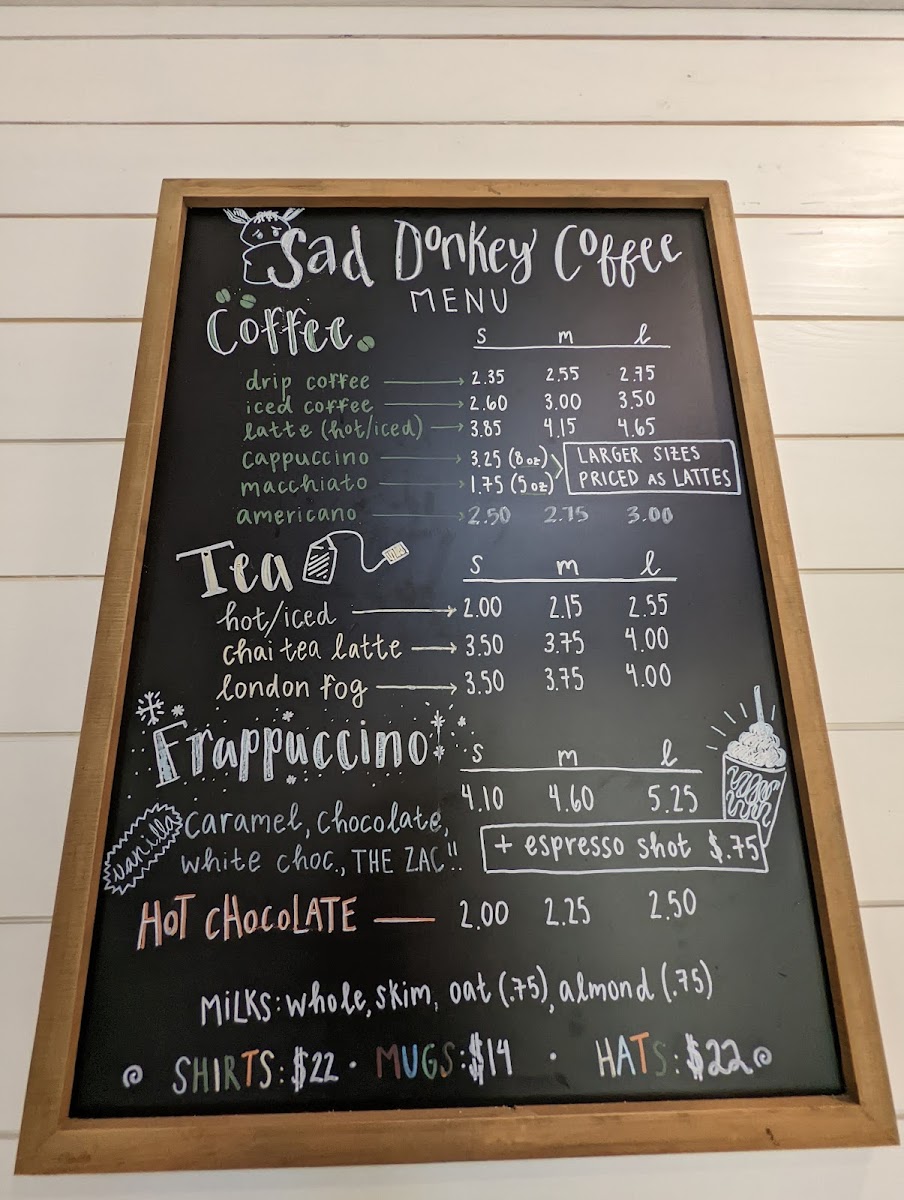 Sad Donkey Coffee
MENU
Coffee
s m l
drip coffee 2.35 2.55 2.75
iced coffee 2.60 3.00 3.50
latte (hot/iced) 3.85 4.15 4.65
cappuccino 3.25 (8 oz)
macchiato 1.75 (5 oz)
LARGER SIZES
PRICED AS LATTES
americano 2.50 2.75 3.00
Tea
s m l
hot/iced 2.00 2.15 2.55
chai tea latte 3.50 3.75 4.00
london fog 3.50 3.75 4.00
Frappuccino
s m l
4.10 4.60 5.25
vanilla
caramel, chocolate,
white choc., THE ZAC!!
+ espresso shot $.75
HOT CHOCOLATE 2.00 2.25 2.50
MILKS: whole, skim, oat (.75), almond (.75)
SHIRTS: $22 · MUGS: $14 · HATS: $22